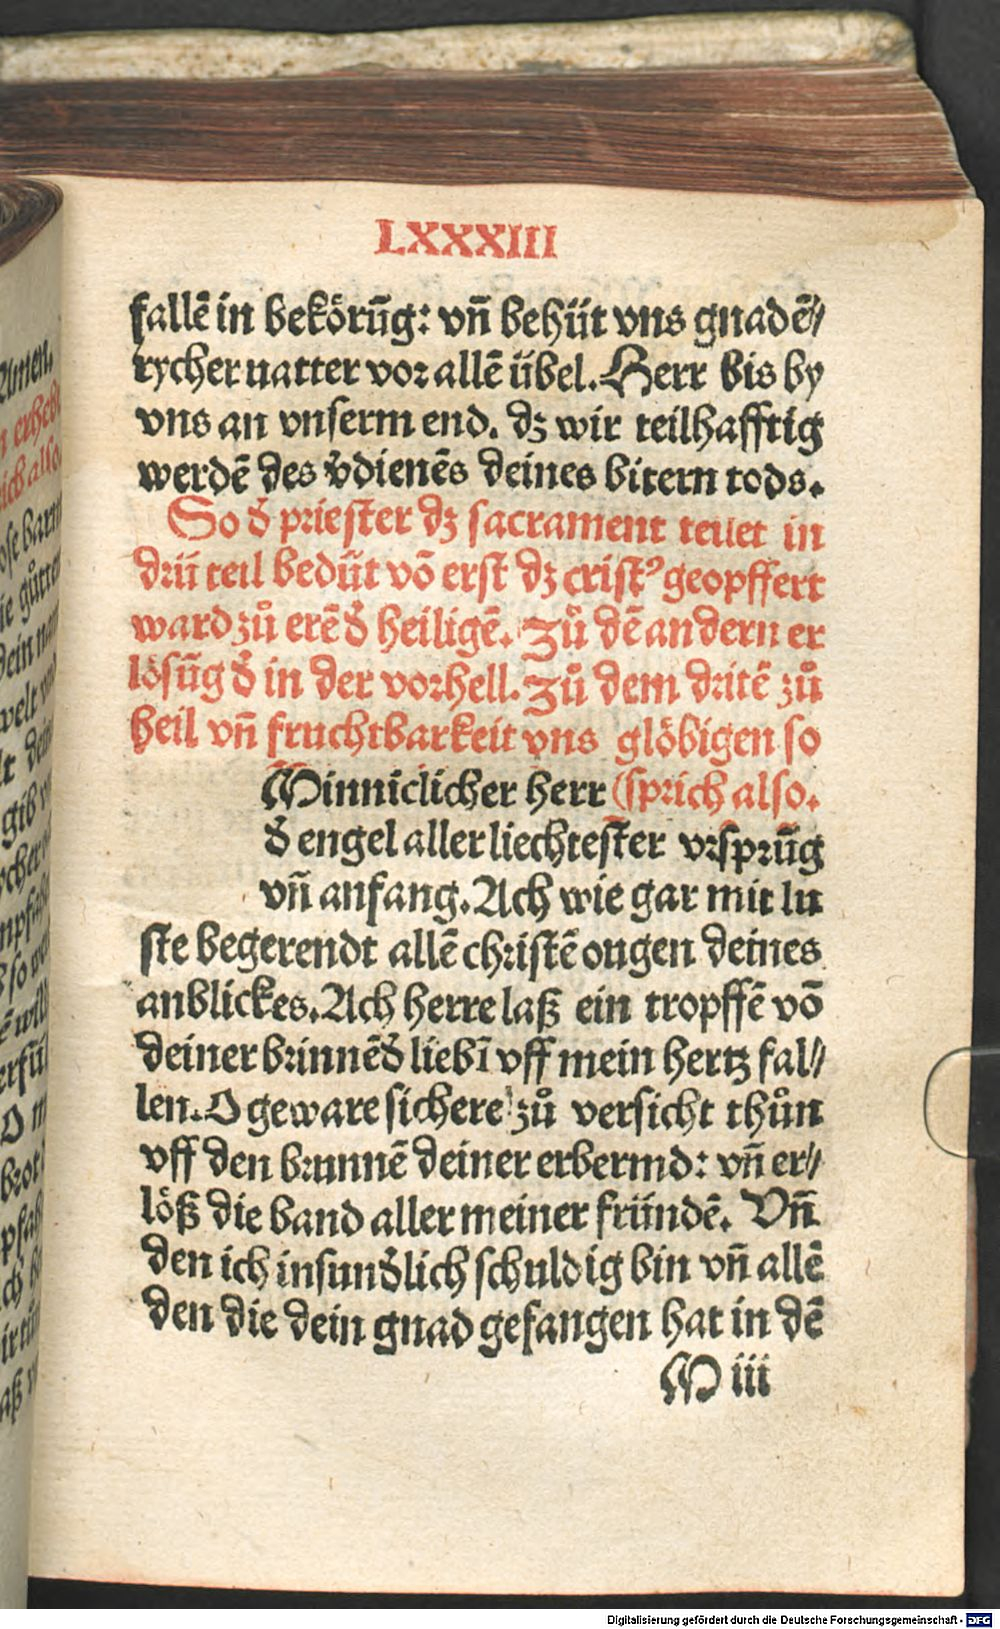 LXXXIII
fallē in bekörūg: vn̄ behüt vns gnadē⸗
rycher uatter vor allē übel. Herr bis by
vns an vnserm end. dz wir teilhafftig
werdē des v̄dienēs deines bitern tods.
So d̄ priester dz sacrament teilet in
drü teil bedüt vō erst dz crist⁹ geopffert
ward zů erē d̄ heiligē. Zů dē andern er
lösūg d̄ in der vorhell. Zů dem dritē zů
heil vn̄ fruchtbarkeit vns glöbigen so
Minniclicher herr (sprich also.
d̄ engel aller liechtester vrsprūg
vn̄ anfang. Ach wie gar mit lu
ste begerendt allē christē ougen deines
anblickes. Ach herre laß ein tropffē vō
deiner brinnēd̄ liebī vff mein hertz fal⸗
len. O geware sichere zů versicht thůn
vff den brunnē deiner erbermd: vn̄ er⸗
löß die band aller meiner fründē. Vn̄
den ich insund̄lich schuldig bin vn̄ allē
den die dein gnad gefangen hat in dē
M iii
Amen.
n erhebt
ich also
brot
Digitalisierung gefördert durch die Deutsche Forschungsgemeinschaft - DFG